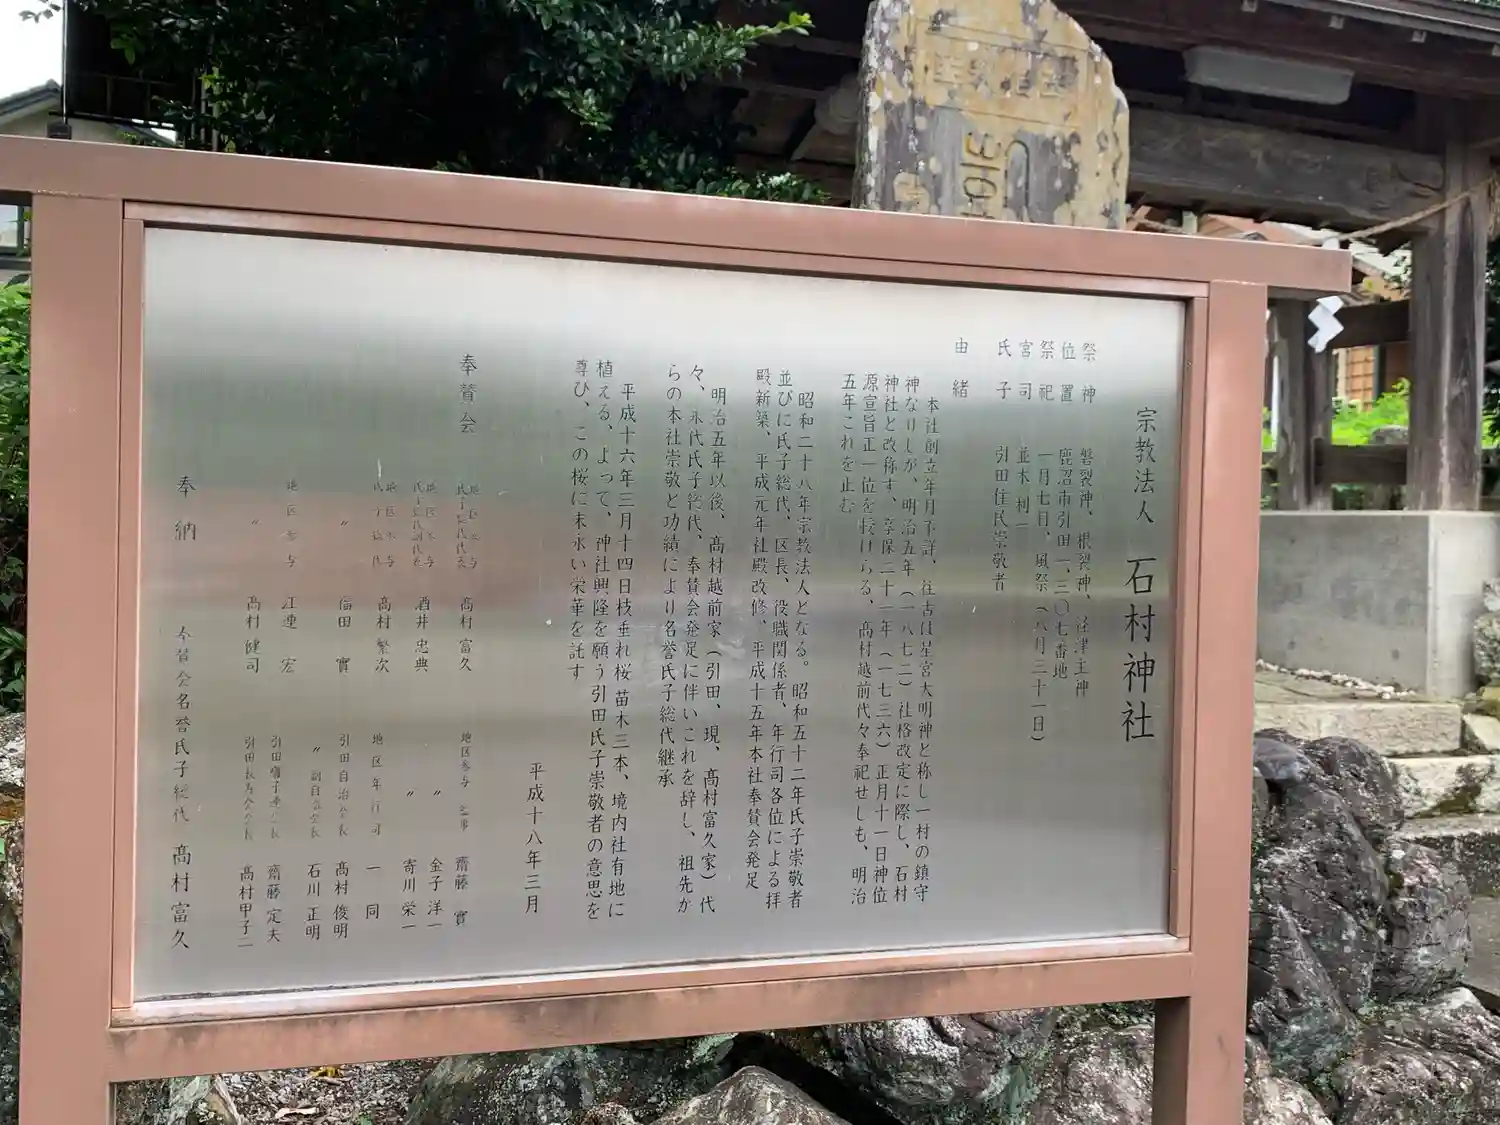 宗教法人 石村神社
祭神 磐裂神、根裂神、経津主神
位置 鹿沼市引田一、三〇七番地
祭祀 一月七日、風祭(八月三十一日)
宮司 並木利一
氏子 引田住民崇敬者
由緒
本社創立年月不詳、往古は星宮大明神と称し一村の鎮守
神なりしが、明治五年(一八七二)社格改定に際し、石村
神社と改称す、享保二十一年(一七三六)正月十一日神位
源宣旨正一位を授けらる、髙村越前代々奉祀せしも、明治
五年これを止む
昭和二十八年宗教法人となる。昭和五十二年氏子崇敬者
並びに氏子総代、区長、役職関係者、年行司各位による拝
殿新築、平成元年社殿改修、平成十五年本社奉賛会発足
明治五年以後、髙村越前家(引田、現、髙村富久家)代
々、永代氏子総代、奉賛会発足に伴いこれを辞し、祖先か
らの本社崇敬と功績により名誉氏子総代継承
平成十六年三月十四日枝垂れ桜 苗木三本、境内社有地に
植える、よって、神社興隆を願う引田氏子崇敬者の意思を
尊び、この桜に末永い栄華を託す
平成十八年三月
奉賛会
地区参与
氏子総代代表 髙村 富久
地区参与
氏子総代副代表 酒井 忠典
地区参与
氏子総代 髙村 繁次
〃 福田 實
地区参与 江連 宏
〃 髙村 健司
地区参与 監事 齋藤 實
〃 金子 洋一
〃 寄川 栄一
地区年行司 一同
引田自治会長 髙村 俊明
〃 副自治会長 石川 正明
齋藤 定夫
髙村甲子二
奉納 奉賛会名誉氏子総代 髙村富久